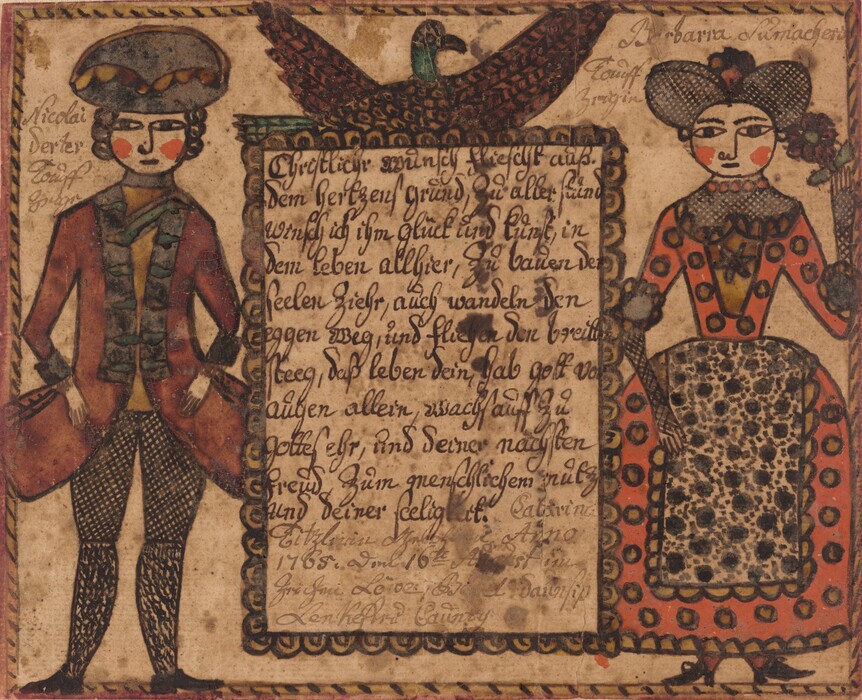 Nicolai
derter
Tauff
Barbarra Sumachern
Tauff
Zeugin
Christlichr wunsch fliescht auß
dem hertzens grund, Zu aller stund
winsch ich ihm glück und kunst, in
dem leben allhier, Zu bauen der
seelen Ziehr, auch wandeln den
eggen weg, und fliehen den breitte
steeg, daß leben dein, hab gott vor
augen allein, wachs auff Zu
gottes ehr, und deiner nachsten
freud Zum menschlichem nutz
und deiner seeligkeit. Catarin
Anno
1765. den 16te August in
daunship
Lenkester Caunty